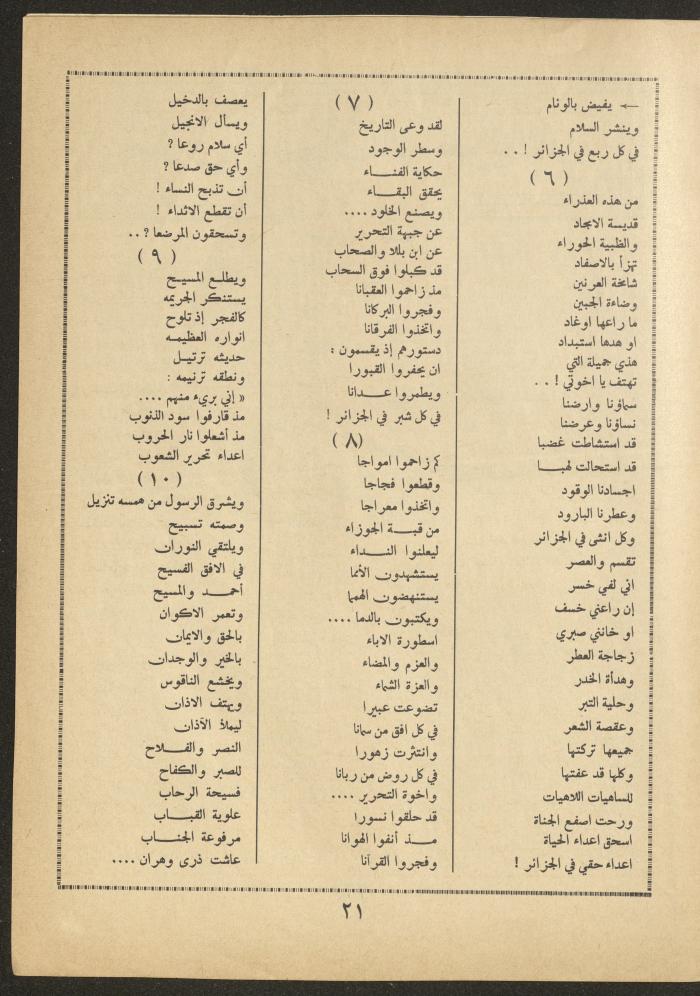 ← يفيض بالوئام
وينشر السلام
في كل ربع في الجزائر ! . .
( ٦ )
من هذه العذراء
قديسة الامجاد
والظبية الحوراء
تهزأ بالاصفاد
شامخة العرنين
وضاءة الجبين
ما راعها اوغاد
او هدها استبداد
هذي جميلة التي
تهتف يا اخوتي ! . .
سماؤنا وارضنا
نساؤنا وعرضنا
قد استشاطت غضبا
قد استحالت لهبــا
اجسادنا الوقود
وعطرنا البارود
وكل انثى في الجزائر
تقسم والعصر
اني لفي خسر
إن راعني خسف
او خانني صبري
زجاجة العطر
وهدأة الخدر
وحلية التبر
وعقصة الشعر
جميعها تركتها
وكلها قد عفتها
للساهيات اللاهيات
ورحت اصفع الجناة
اسحق اعداء الحياة
اعداء حقي في الجزائر !
( ٧ )
لقد وعى التاريخ
وسطر الوجود
حكاية الفنــاء
يحقق البقــاء
ويصنع الخلود ....
عن جبهة التحرير
عن ابن بللا والصحاب
قد كبلوا فوق السحاب
مذ زاحموا العقبانا
وفجروا البركانا
واتخذوا الفرقانا
دستورهم إذ يقسمون :
ان يحفروا القبورا
ويطمروا عــدانا
في كل شبر في الجزائر !
( ٨ )
كم زاحموا امواجا
وقطعوا فجاجا
واتخذوا معراجا
من قبــة الجوزاء
ليعلنوا النــداء
يستشهدون الأنما
يستنهضون الهمما
ويكتبون بالدما ....
اسطورة الاباء
والعزم والمضاء
والعزة الشماء
تضوعت عبيرا
في كل افق من سمانا
وانتثرت زهورا
في كل روض من ربانا
واخوة التحرير ....
قد حلقوا نسورا
مــذ أنفوا الهوانا
وفجروا القرآنا
يعصف بالدخيل
ويسأل الانجيل
أي سلام روعا ؟
وأي حق صدعا ؟
أن تذبح النساء !
أن تقطع الاثداء !
وتسحقون المرضعا ؟ . .
( ٩ )
ويطلــع المسيــح
يستنكر الجريمه
كالفجر إذ تلوح
انواره العظيمــه
حديثه ترتيــل
ونطقه ترنيمه :
« إني بريء منهم ....
مذ قارفوا سود الذنوب
مذ أشعلوا نار الحروب
اعداء تحرير الشعوب
( ١٠ )
ويشرق الرسول من همسه تنزيل
وصمته تسبيح
ويلتقي النوران
في الافق الفسيح
أحمــد والمسيح
وتعمر الاكوان
بالحق والايمان
بالخير والوجدان
ويخشع الناقوس
ويهتف الاذان
ليملأ الآذان
النصر والفــلاح
للصبر والكفاح
فسيحة الرحاب
علوية القبــاب
مرفوعة الجنــاب
عاشت ذرى وهران ....
٢١